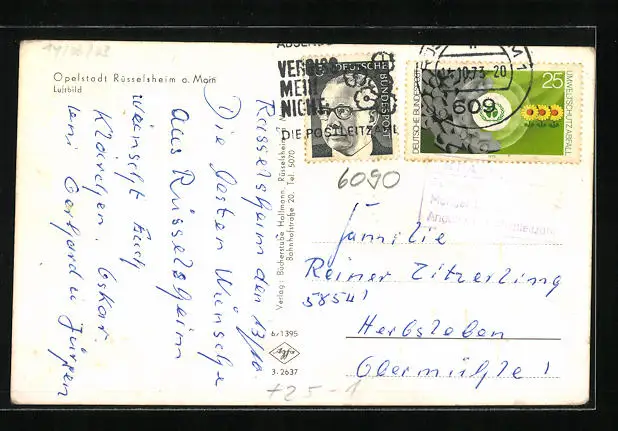 14/10/73
Opelstadt Rüsselsheim a. Main
Luftbild
Rüsselsheim den 13/10.
Die besten Wünsche
aus Rüsselsheim
wünscht Euch
Klärchen. Oskar.
Gerhard u Jürgen
Verlag: Bücherstube Hollmann, Rüsselsheim
Bahnhofstraße 20, Tel. 5070
6/1395
Agfa
3. 2637
+25-1
ABSENDER
VERGISS
MEIN
NICHT
DIE POSTLEITZAHL
DEUTSCHE BUNDESPOST
DEUTSCHE BUNDESPOST
25
UMWELTSCHUTZ: ABFALL
10.73. 20
609
6090
Familie
Reiner Zitzerling
5854!
Herbsleben
Obermühle!